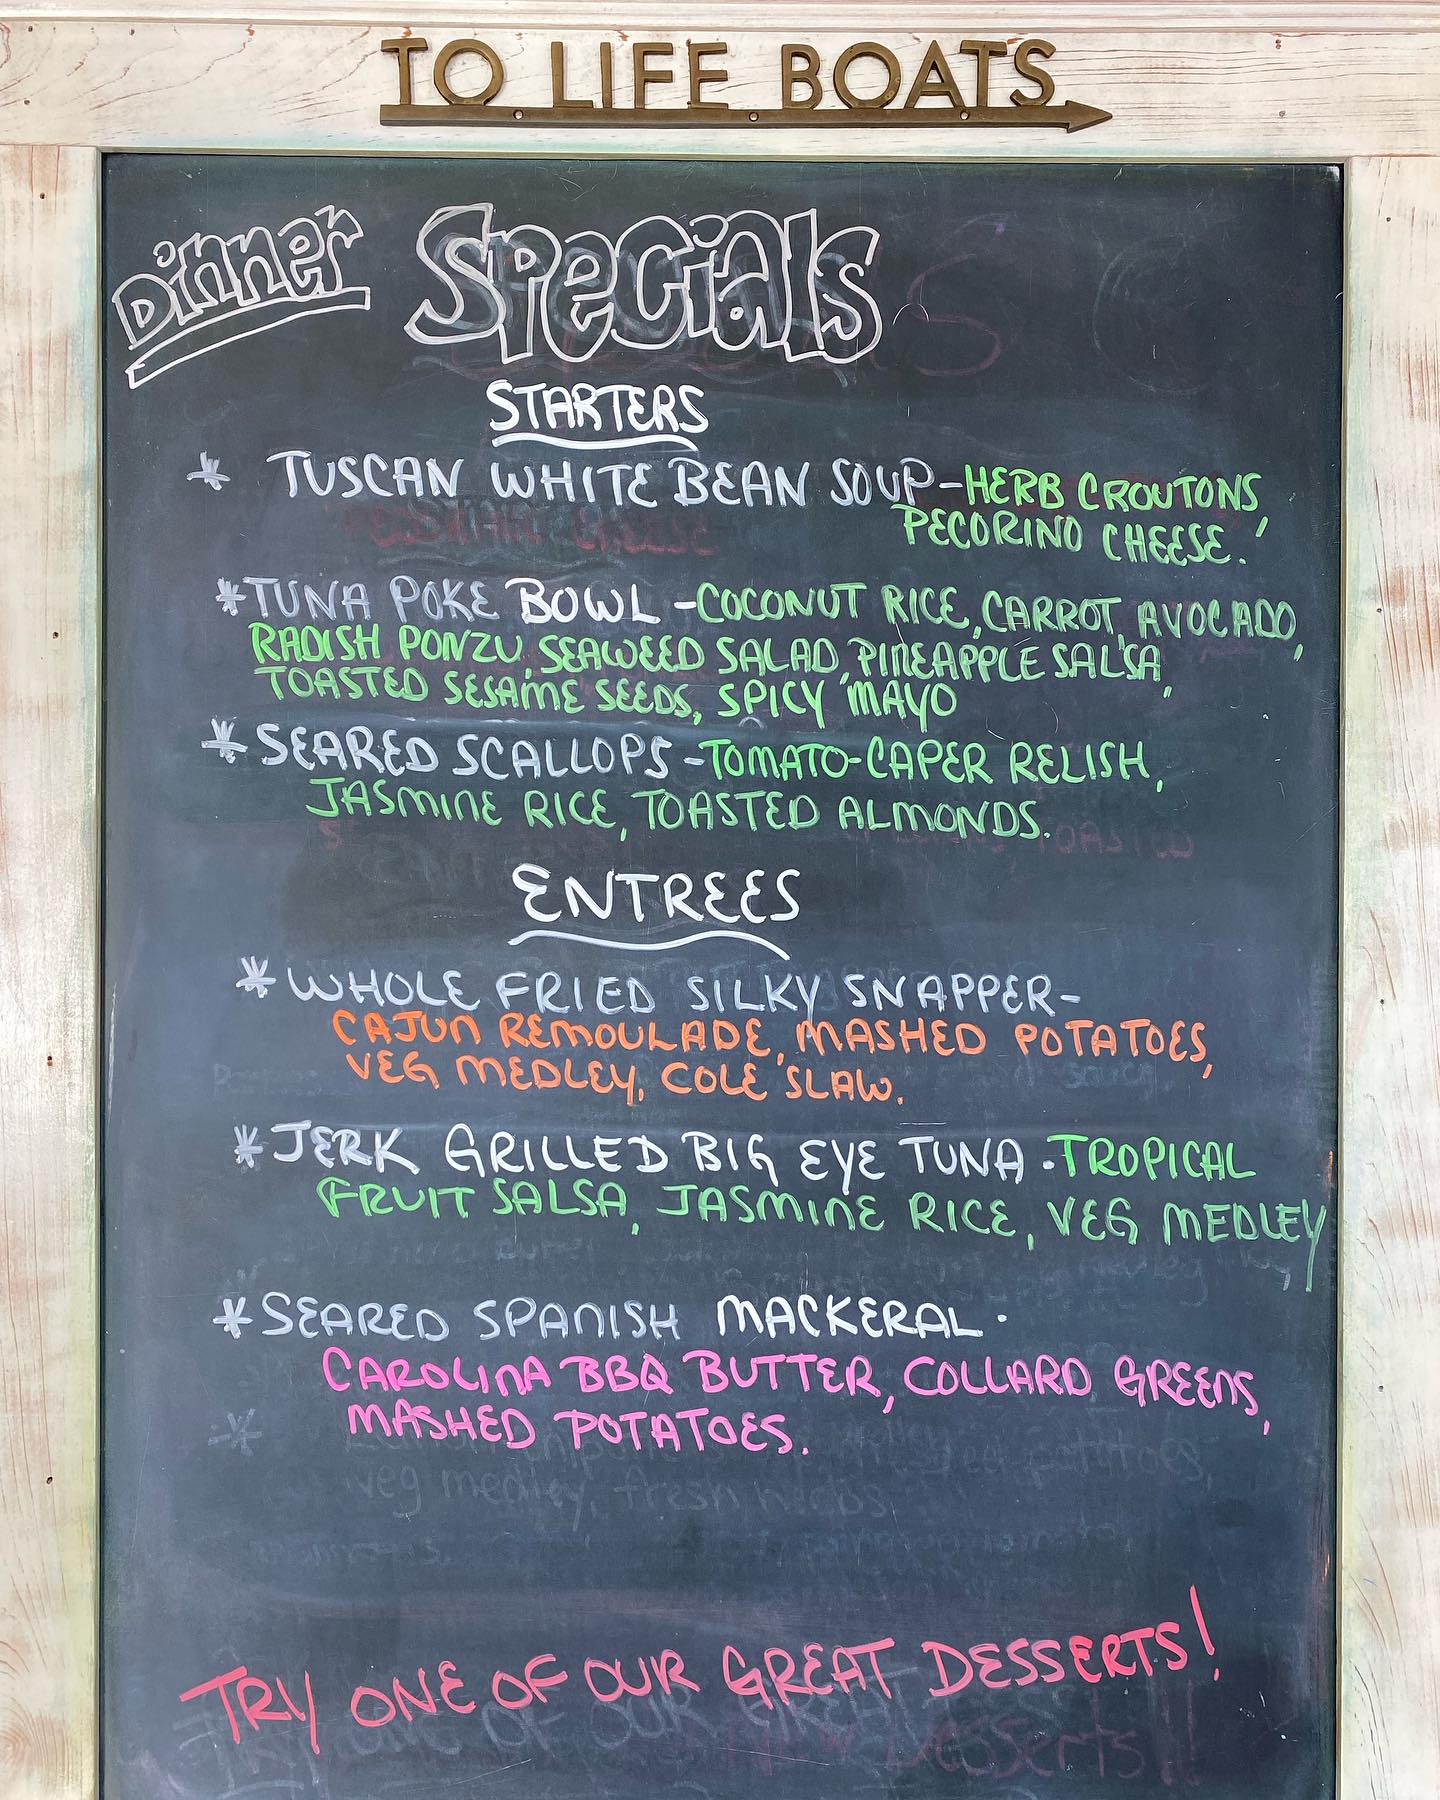 TO LIFE BOATS
Dinner Specials
STARTERS
* TUSCAN WHITE BEAN SOUP-HERB CROUTONS,
PECORINO CHEESE.
*TUNA POKE BOWL -COCONUT RICE, CARROT, AVOCADO,
RADISH PONZU, SEAWEED SALAD, PINEAPPLE SALSA,
TOASTED SESAME SEEDS, SPICY MAYO
*SEARED SCALLOPS -TOMATO-CAPER RELISH,
JASMINE RICE, TOASTED ALMONDS.
ENTREES
*WHOLE FRIED SILKY SNAPPER-
CAJUN REMOULADE, MASHED POTATOES,
VEG MEDLEY, COLE SLAW.
*JERK GRILLED BIG EYE TUNA -TROPICAL
FRUIT SALSA, JASMINE RICE, VEG MEDLEY
*SEARED SPANISH MACKERAL-
CAROLINA BBQ BUTTER, COLLARD GREENS,
MASHED POTATOES.
veg medley, fresh herbs
TRY ONE OF OUR GREAT DESSERTS!